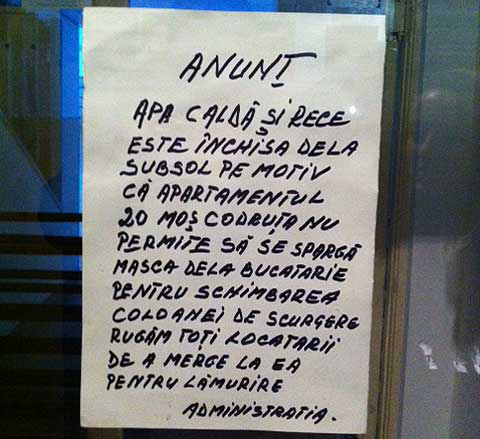 ANUNȚ
APA CALDĂ ȘI RECE
ESTE ÎNCHISA DELA
SUBSOL PE MOTIV
CĂ APARTAMENTUL
20 MOȘ CODRUȚA NU
PERMITE SĂ SE SPARGĂ
MASCA DELA BUCATARIE
PENTRU SCHIMBAREA
COLOANEI DE SCURGERE
RUGĂM TOȚI LOCATARII
DE A MERGE LA EA
PENTRU LĂMURIRE
ADMINISTRATIA.